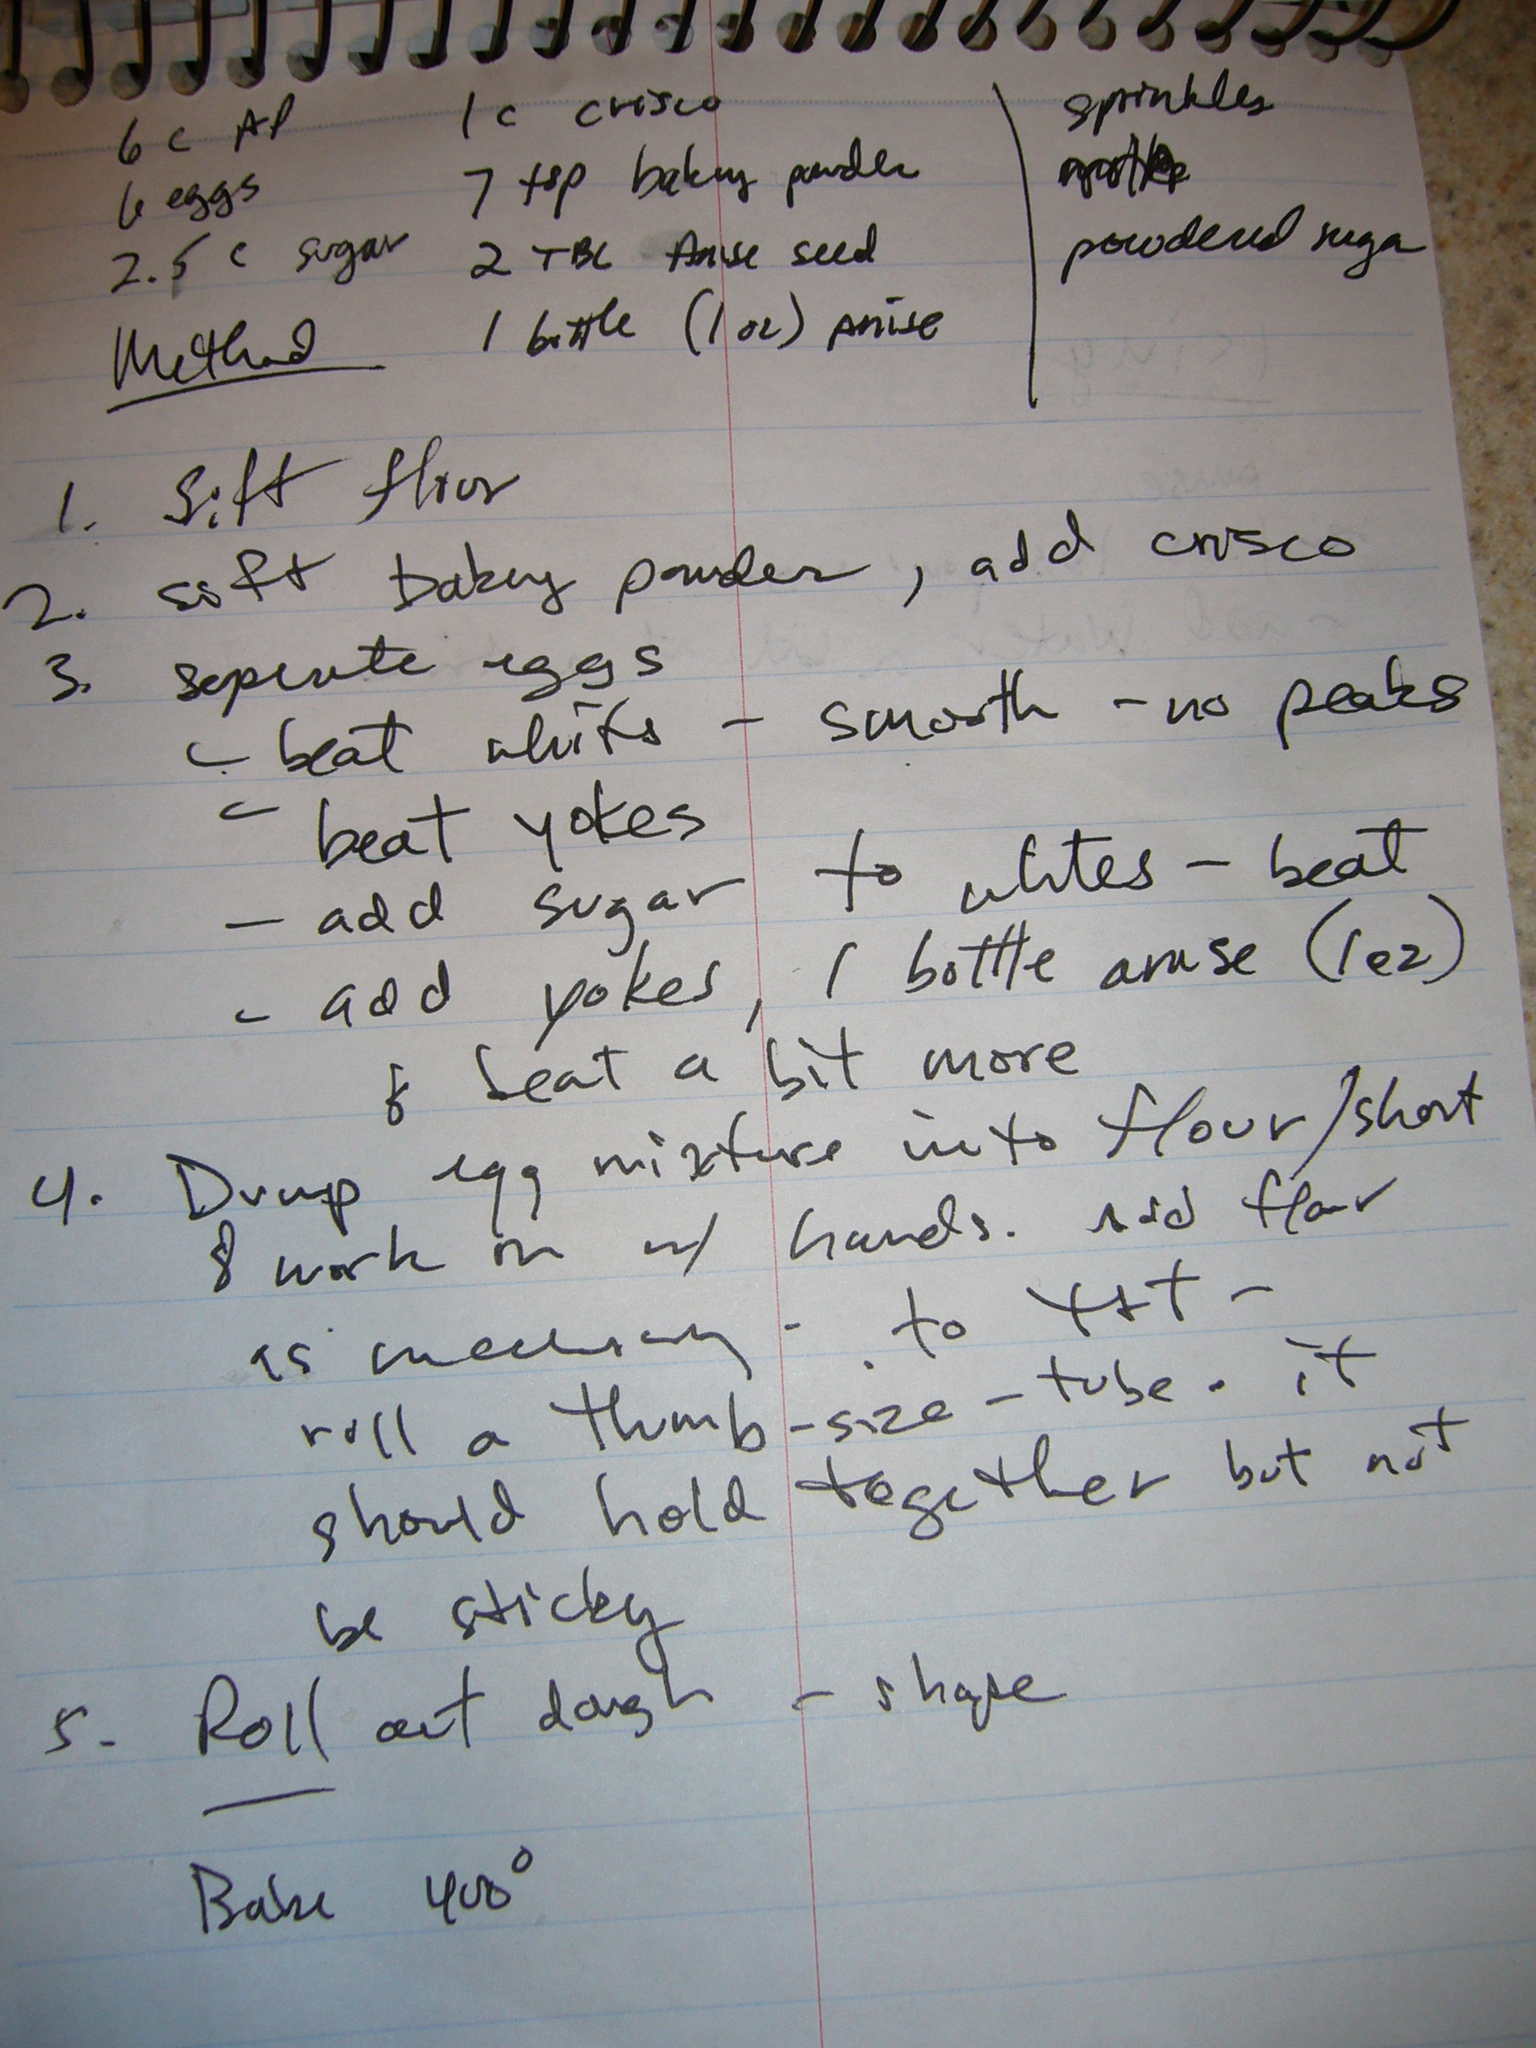 6 c AP
6 eggs
2.5 c sugar
1 c crisco
7 tsp baking powder
2 TBL Anise seed
1 bottle (1 oz) anise
sprinkles
powdered suga
Method
1. Sift flour
2. sift baking powder, add crisco
3. seperate eggs
- beat whites - smooth - no peaks
- beat yokes
- add sugar to whites - beat
- add yokes, 1 bottle anise (1 oz)
& beat a bit more
4. Dump egg mixture into flour/short
& work in w/ hands. Add flour
as necessary. to test -
roll a thumb-size-tube. it
should hold together but not
be sticky
5. Roll out dough - shape
Bake 400°